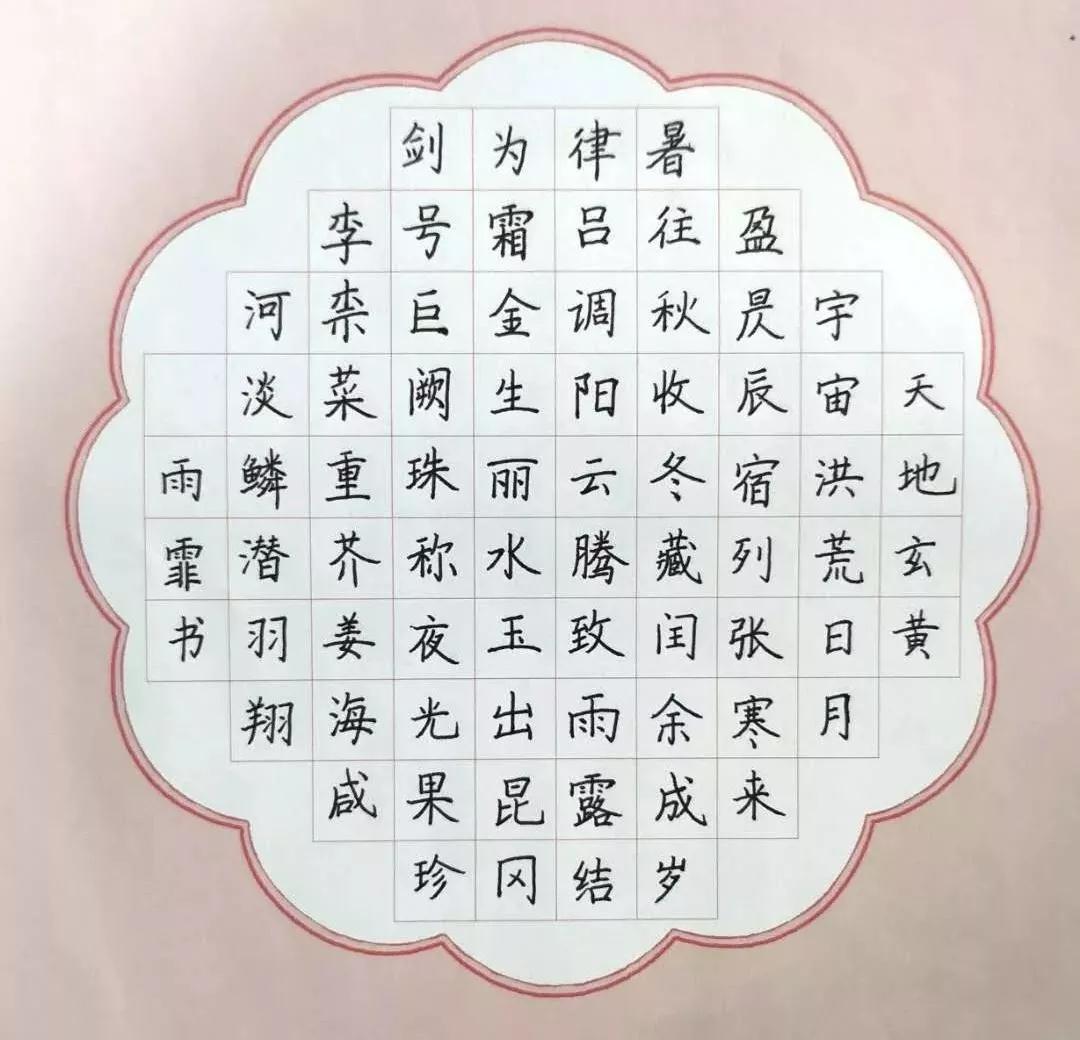 天地玄黄
宇宙洪荒日月
盈昃辰宿列张寒来
暑往秋收冬藏闰余成岁
律吕调阳云腾致雨露结
为霜金生丽水玉出昆冈
剑号巨阙珠称夜光果珍
李柰菜重芥姜海咸
河淡鳞潜羽翔
雨霏书